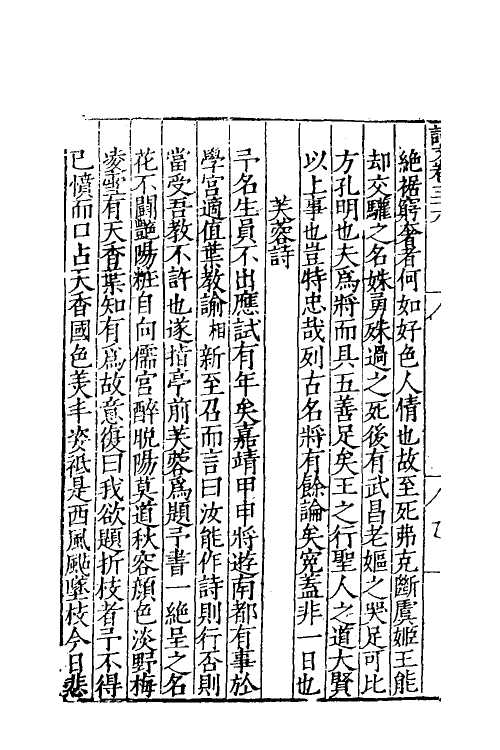 絶裾窮奢者何如好色人情也故至死弗克斷虞姬王能
却交驩之名姝勇殊過之死後有武昌老嫗之哭足可比
方孔明也夫爲將而具五善足矣王之行聖人之道大賢
以上事也豈特忠哉列古名將有餘論矣寃蓋非一日也
芙蓉詩
予名生員不出應試有年矣嘉靖甲申將遊南都有事於
學宫適值葉教諭相新至召而言曰汝能作詩則行否則
當受吾教不許也遂指亭前芙蓉爲題予書一絶呈之名
花不鬬艷陽粧自向儒宫醉晩陽莫道秋容顔色淡野梅
凌雪有天香葉知有爲故意復曰我欲題折枝者予不得
已憤而口占天香國色美丰姿祗是西風颭墜枝今日悲